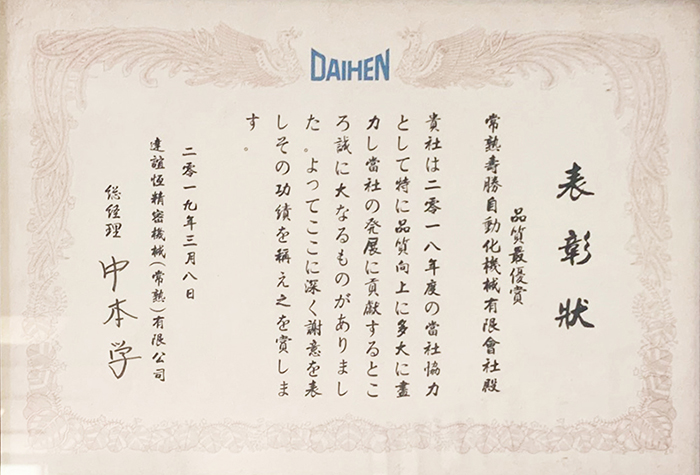 DAIHEN
表彰狀
品質最優賞
常熟壽勝自動化機械有限會社殿
貴社は二零一八年度の當社協力
として特に品質向上に多大に盡
力し當社の発展に貢献するとこ
ろ誠に大なるものがありまし
た。よってここに深く謝意を表
しその功績を稱え之を賞しま
す。
二零一九年三月八日
達誼恆精密機械(常熟)有限公司
総経理 中本学